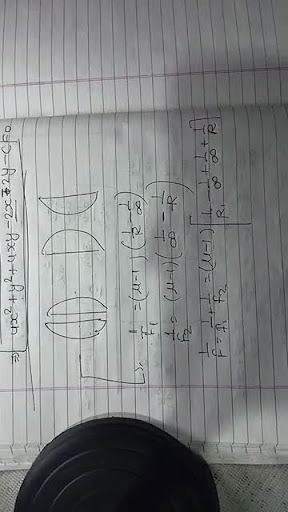 ⇒ 4x² + y² + 4xy - 2x + 2y - c = 0
1/F₁ = (μ-1) (1/R - 1/∞)
1/F₂ = (μ-1) (1/∞ - 1/-R)
1/F = 1/F₁ + 1/F₂ = (μ-1) [1/R₁ - 1/∞ + 1/∞ + 1/R]